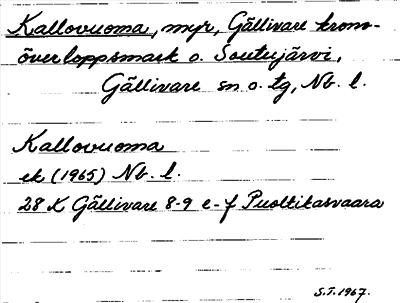 Kallovuoma, myr, Gällivare krono-
överloppsmark o. Soutujärvi,
Gällivare sn o. tg, Nb. l.
Kallovuoma
ek (1965) Nb. l.
28 K Gällivare 8-9 e-f Puoltikasvaara
S.T. 1967.